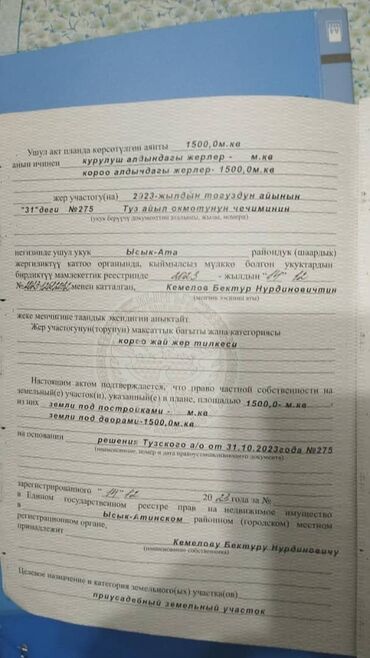 Ушул акт планда көрсөтүлгөн аянты 1500,0м.кв
анын ичинен курулуш алдындагы жерлер - м.кв
короо алдындагы жерлер- 1500,0м.кв
жер участогу(на) 2023-жылдын тогуздун айынын
"31"деги №275 Туз айыл окмотунун чечиминин
(укук берүүчү документтин аталышы, жылы, номери)
негизинде ушул укук Ысык-Ата райондук (шаардык)
жергиликтүү каттоо органында, кыймылсыз мүлккө болгон укуктардын
бирдиктүү мамлекеттик реестринде 2023 - жылдын "14" 12
№ менен катталган, Кемелов Бектур Нурдиновичтин
(менчик ээсинин аты)
жеке менчигине таандык экендигин аныктайт.
Жер участогунун(торунун) максаттык багыты жана категориясы
короо жай жер тилкеси
Настоящим актом подтверждается, что право частной собственности на
земельный(е) участок(и), указанный(е) в плане, площадью 1500,0- м.кв
из них земли под постройками -. м.кв
земли под дворами-1500,0м.кв
на основании решения Тузского а/о от 31.10.2023года №275
(наименование, номер и дата правоустанавливающего документа)
зарегистрированного "14" 12 2023 года за №
в Едином государственном реестре прав на недвижимое имущество
в Ысык-Атинском районном (городском) местном
регистрационном органе,
принадлежит Кемелову Бектуру Нурдиновичу
(наименование собственника)
Целевое назначение и категория земельного(ых) участка(ов)
приусадебный земельный участок